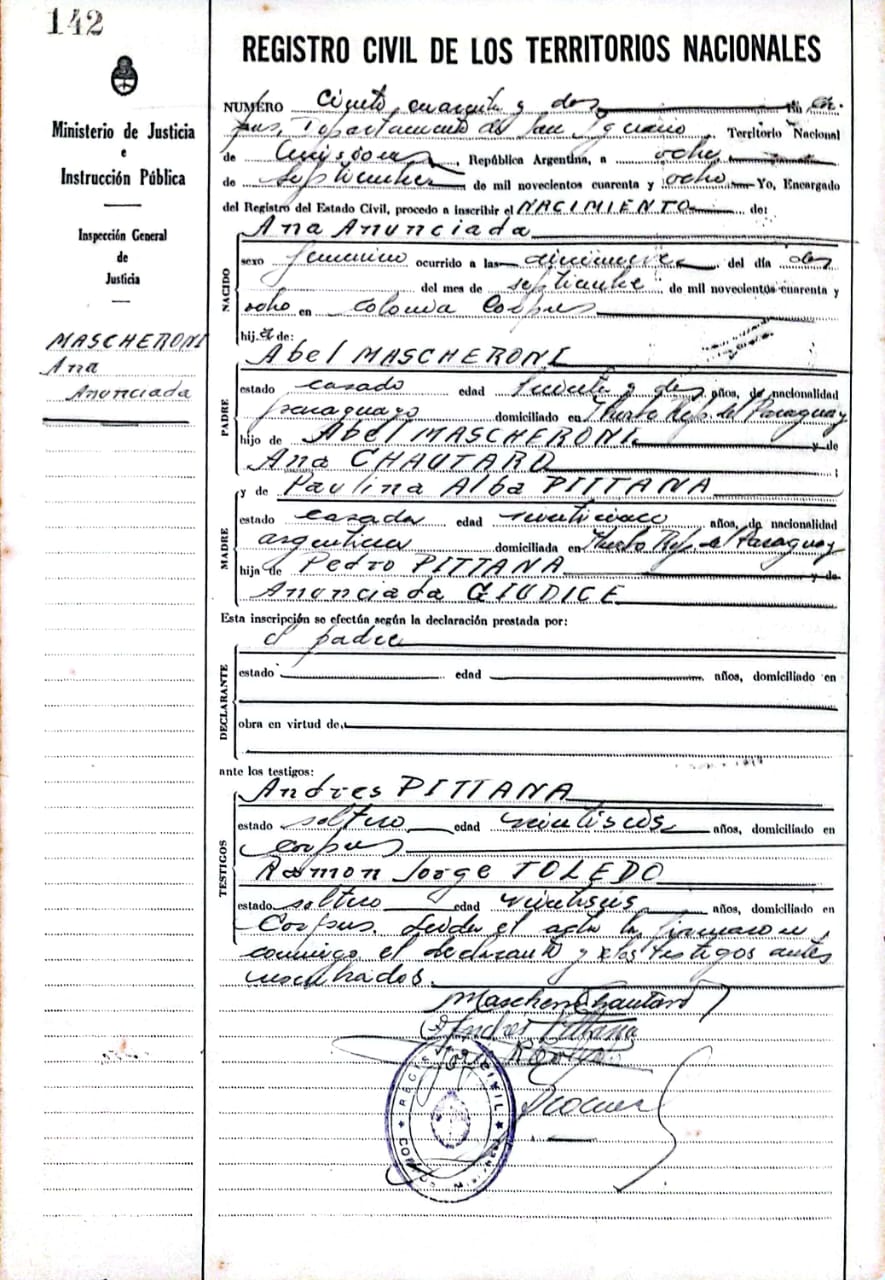 142
Ministerio de Justicia
e
Instrucción Pública
Inspección General
de
Justicia
MASCHERONI
Ana
Anunciada
REGISTRO CIVIL DE LOS TERRITORIOS NACIONALES
NUMERO Ciento cuarenta y dos En Cor-
pus, Departamento de San Ignacio, Territorio Nacional
de Misiones, República Argentina, a ocho
de septiembre de mil novecientos cuarenta y ocho Yo, Encargado
del Registro del Estado Civil, procedo a inscribir el NACIMIENTO de:
NACIDO
Ana Anunciada
sexo femenino ocurrido a las diecinueve del día dos
del mes de septiembre de mil novecientos cuarenta y
ocho en Colonia Corpus
hija de:
PADRE
Abel MASCHERONI
estado casado edad treinta y dos años, de nacionalidad
paraguayo domiciliado en Rep. del Paraguay
hijo de Abel MASCHERONI y de
Ana CHAUTARD
MADRE
y de Paulina Alba PITTANA
estado casada edad veinticinco años, de nacionalidad
argentina domiciliada en Rep. del Paraguay
hija de Pedro PITTANA y de
Anunciada GIUDICE
Esta inscripción se efectúa según la declaración prestada por:
DECLARANTE
el padre
estado edad años, domiciliado en
obra en virtud de
ante los testigos:
TESTIGOS
Andres PITTANA
estado soltero edad veintiseis años, domiciliado en
Corpus
Ramon Jorge TOLEDO
estado soltero edad veintiseis años, domiciliado en
Corpus. Leida el acta la firmaron
conmigo el declarante y los testigos antes
nombrados.
Mascheroni Chautard
Andrés Pittana